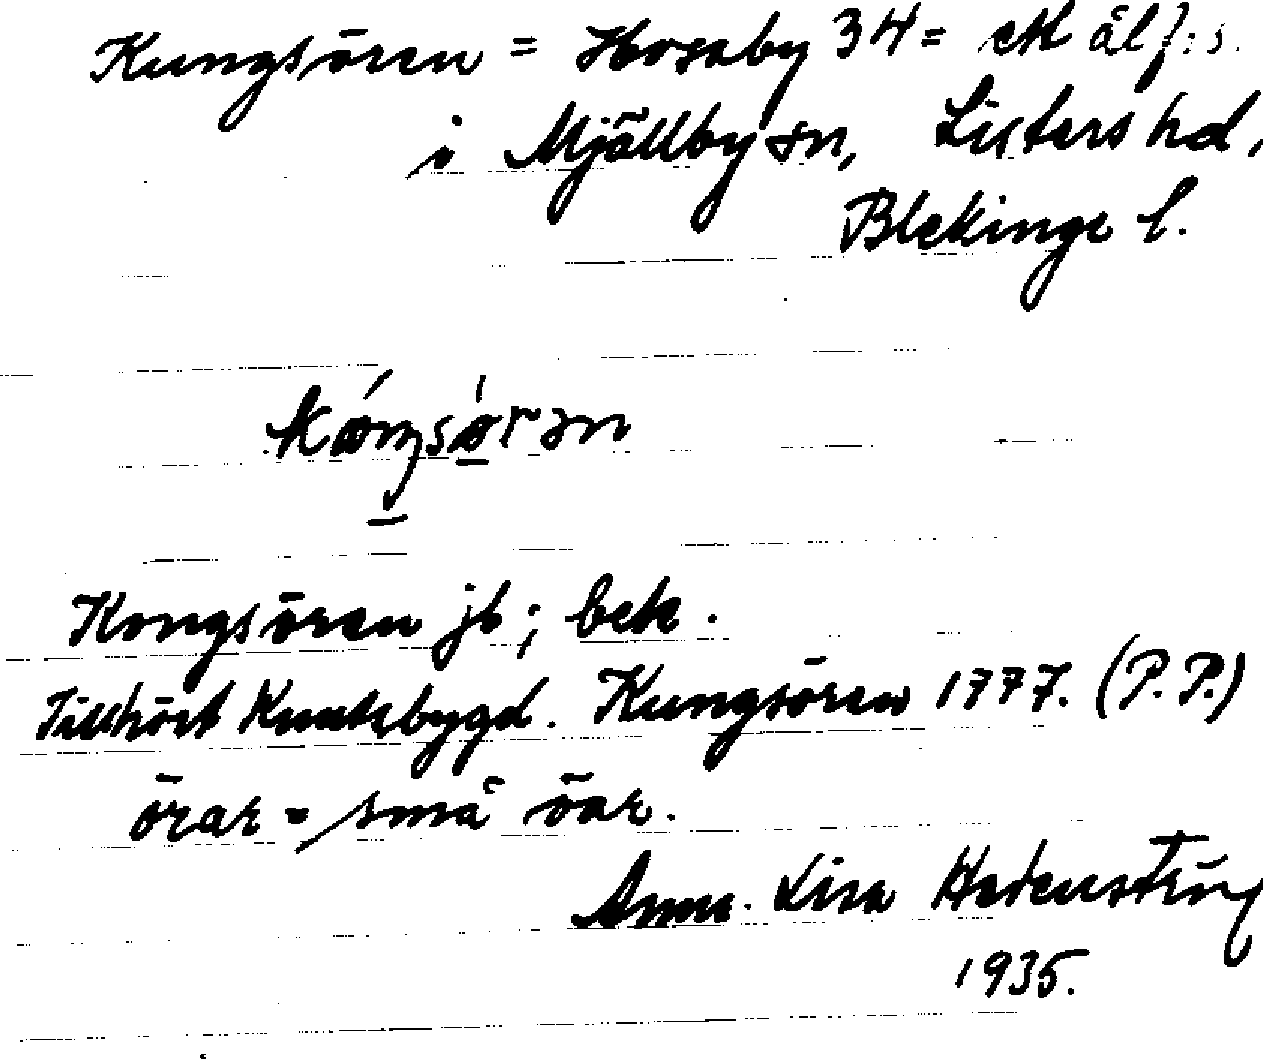 Kungsören = Hosaby 34 = ett ålf:s.
i Mjällby sn, Listers hd,
Blekinge l.
kóngsö́rən
Kongsören jb; bek.
Tillhört Knutsbygd. Kungsören 1777. (P. P.)
örar = små öar.
Anna-Lisa
1935.